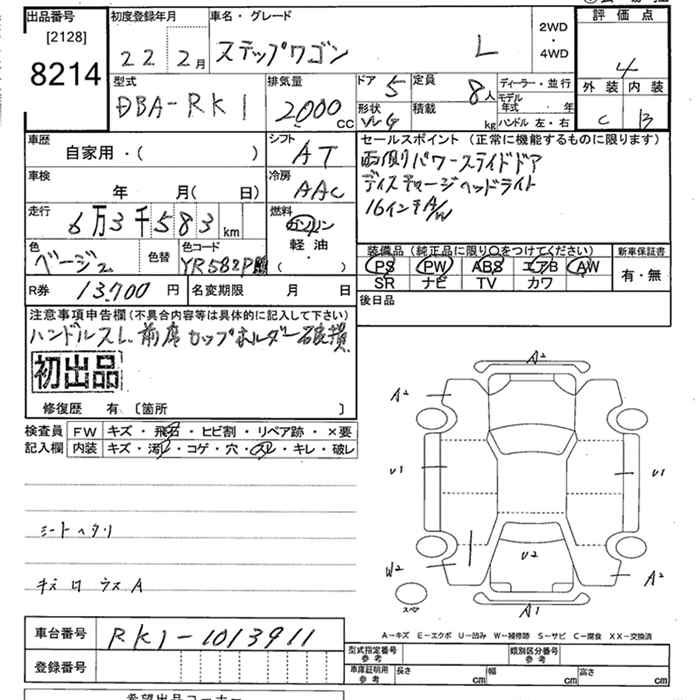 出品番号
[2128]
8214
初度登録年月
22 2月
車名・グレード
ステップワゴン L
2WD
・
4WD
評価点
4
外装 内装
C B
型式
DBA-RK1
排気量
2000 cc
ドア 5
定員 8人
形状
積載 kg
ディーラー・並行
モデル年式 ・ 年
ハンドル 左・右
車歴
自家用・( )
シフト
AT
セールスポイント (正常に機能するものに限ります)
両側パワースライドドア
ディスチャージヘッドライト
16インチA/W
車検
年 月( 日)
冷房
AAC
走行
6万3千583km
燃料
ガソリン
軽油・
( )
色
ベージュ
色替
色コード
YR582P
装備品 (純正品に限り○をつけてください)
PS PW ABS エアB AW
SR ナビ TV カワ
新車保証書
有・無
R券 13,700円
名変期限 月 日
後日品
注意事項申告欄(不具合内容等は具体的に記入して下さい)
ハンドルスレ 前席カップホルダー破損
初出品
修復歴 有 [箇所 ]
検査員 FW キズ・飛石・ヒビ割・リペア跡・×要
記入欄 内装 キズ・汚レ・コゲ・穴・スレ・キレ・破レ
シートヘタリ
キズ ロ ウス A
A2
A2
U1
U1
U2
W2
A2
A1
スペア
A-キズ E-エクボ U-凹み W-補修跡 S-サビ C-腐食 XX-交換済
車台番号 RK1-1013911
登録番号
型式指定番号
参考
類別区分番号
参考
車庫証明用
参考
長さ cm 幅 cm 高さ cm
希望出品コーナー